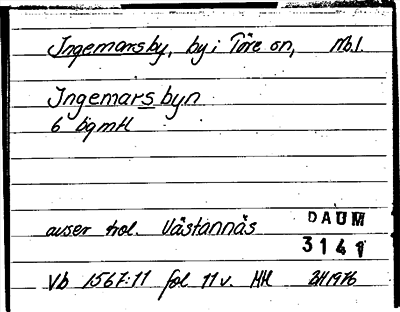 Ingemarsby, by i Töre sn, Nb.l.
Ingemarsbyn
6 bgmtl
avser trol. Västannäs
DAUM
3141
Vb 1567:11 fol 11 v. MH 1976